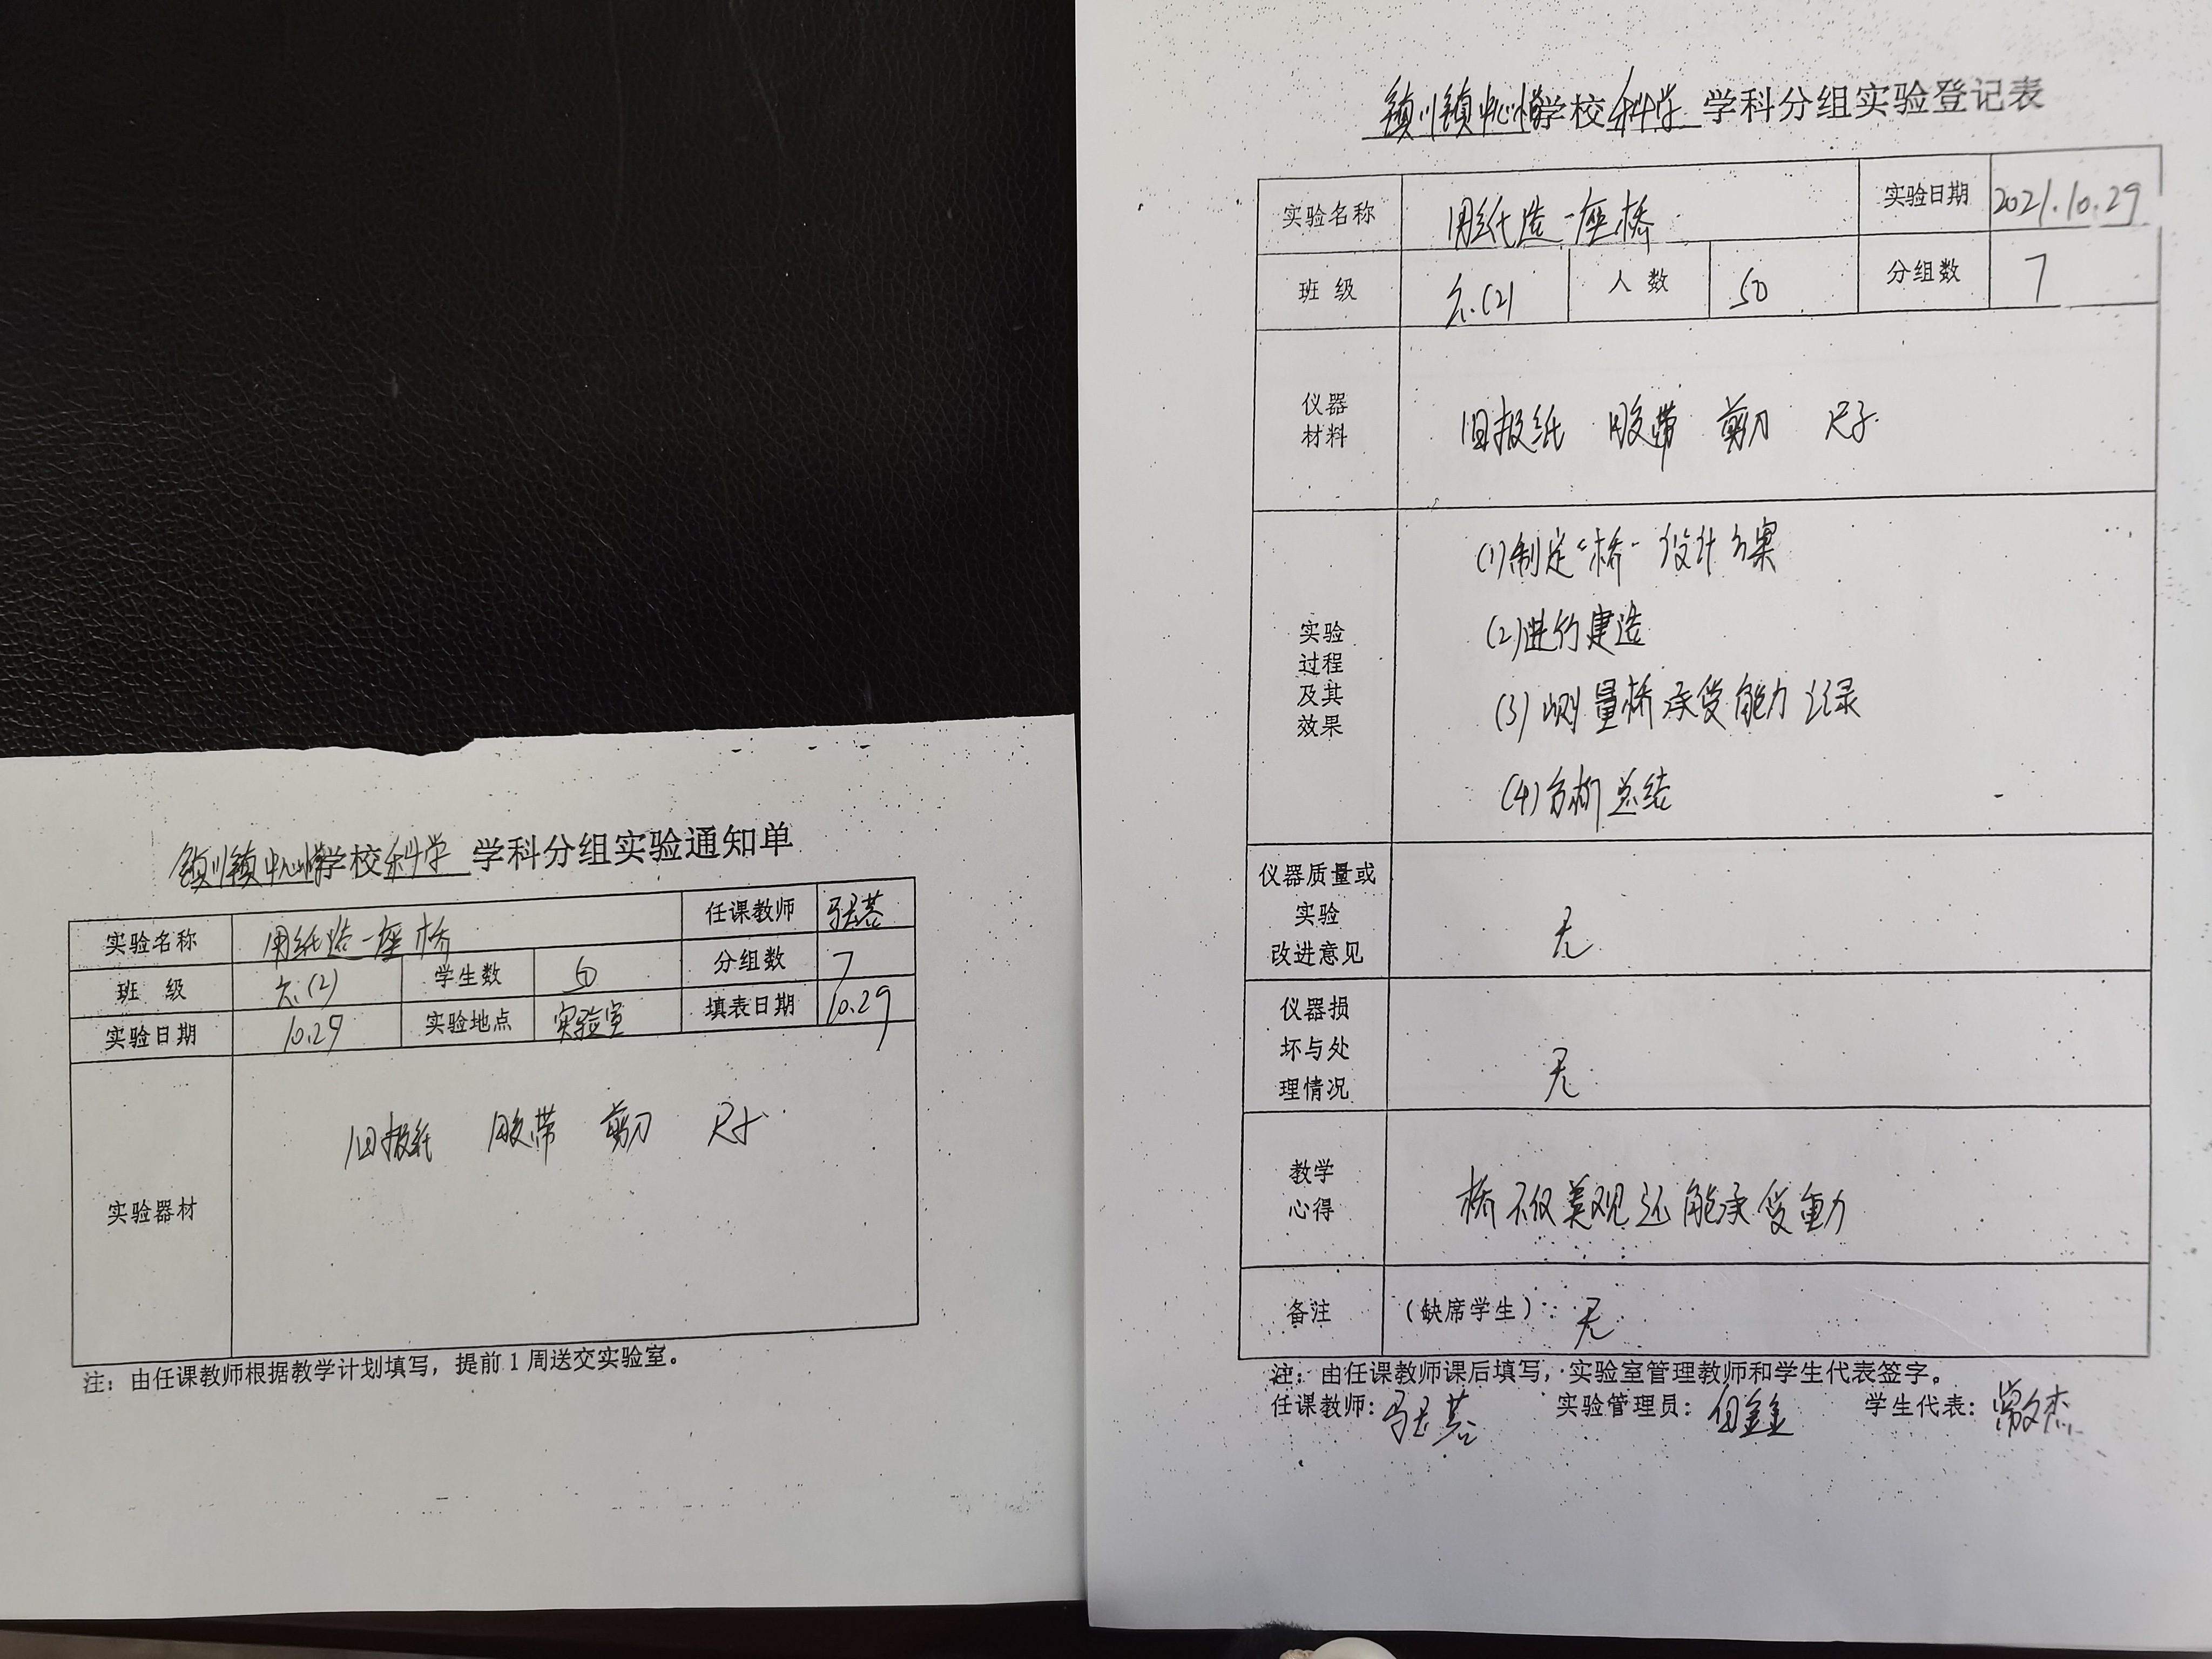 镇川镇中心小学校科学 学科分组实验通知单
实验名称 用纸造一座桥 任课教师
班 级 六.(2) 学生数 50 分组数 7
实验日期 10.29 实验地点 实验室 填表日期 10.29
实验器材 旧报纸 胶带 剪刀 尺子
注：由任课教师根据教学计划填写，提前1周送交实验室。
镇川镇中心小学校科学 学科分组实验登记表
实验名称 用纸造一座桥 实验日期 2021.10.29
班 级 六.(2) 人 数 50 分组数 7
仪器
材料
旧报纸 胶带 剪刀 尺子.
实验
过程
及其
效果
(1)制定“桥”设计方案
(2)进行建造
(3)测量桥承受能力记录
(4)分析总结
仪器质量或
实验
改进意见
无
仪器损
坏与处
理情况
无
教学
心得
桥不仅美观还能承受重力
备注 （缺席学生）：无
注：由任课教师课后填写，实验室管理教师和学生代表签字。
任课教师： 实验管理员： 学生代表：常文杰